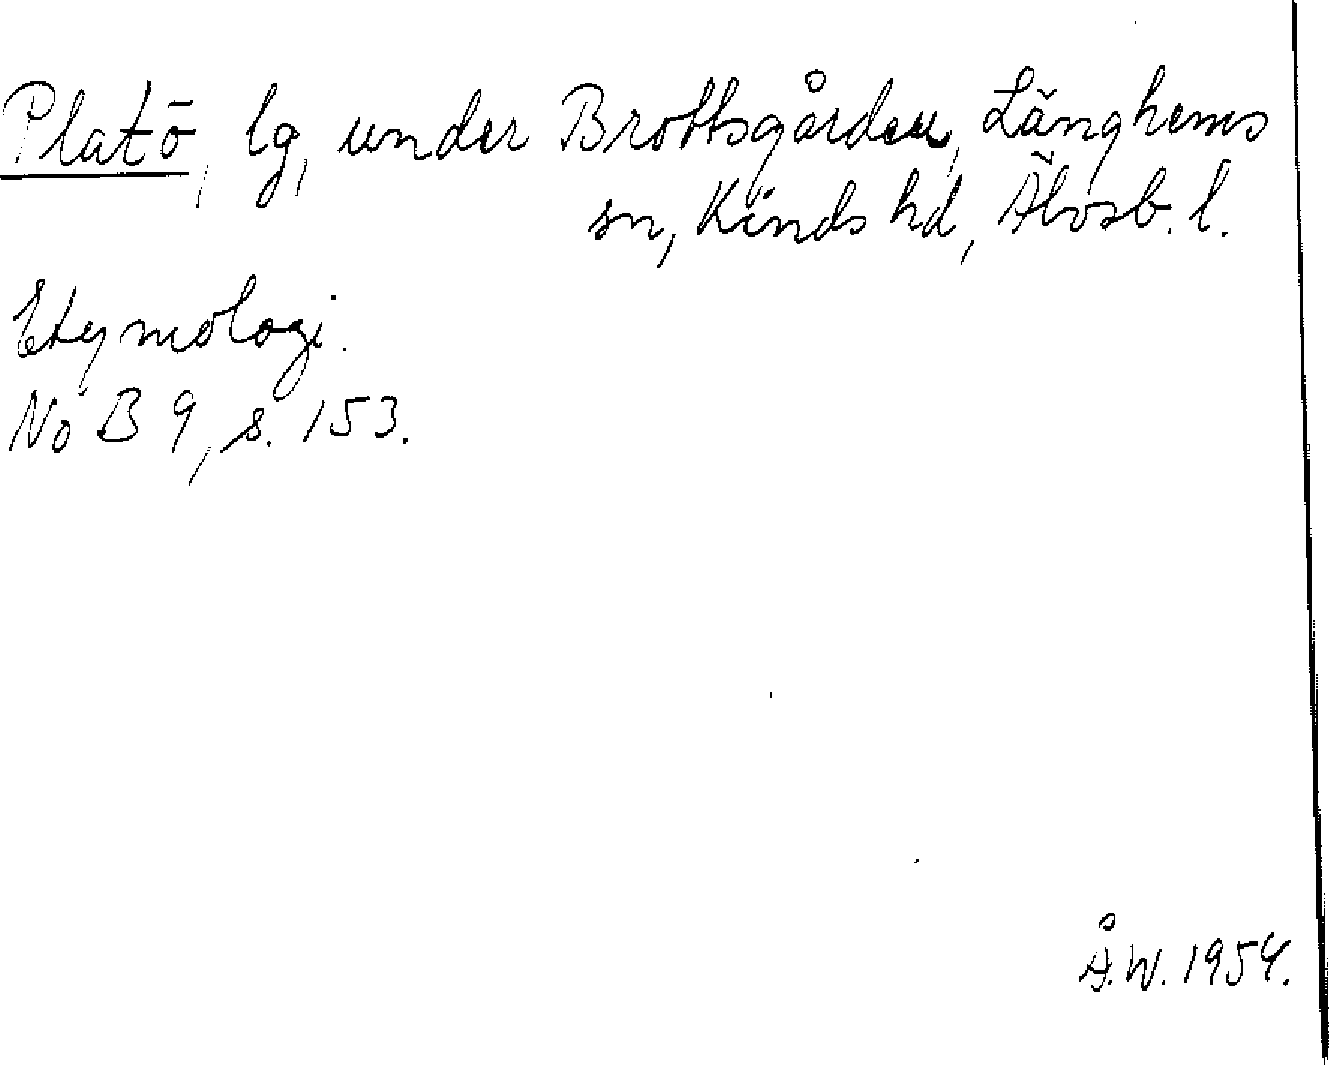 Platö, lg, under Brottsgården, Länghems
sn, Kinds hd, Älvsb. l.
Etymologi.
NoB 9, s. 153.
Å.W. 1954.